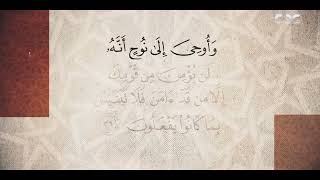 وَأُوحِيَ إِلَىٰ نُوحٍ أَنَّهُۥ
لَن يُؤْمِنَ مِن قَوْمِكَ
إِلَّا مَن قَدْ ءَامَنَ فَلَا تَبْتَئِسْ
بِمَا كَانُوا۟ يَفْعَلُونَ ٣٦